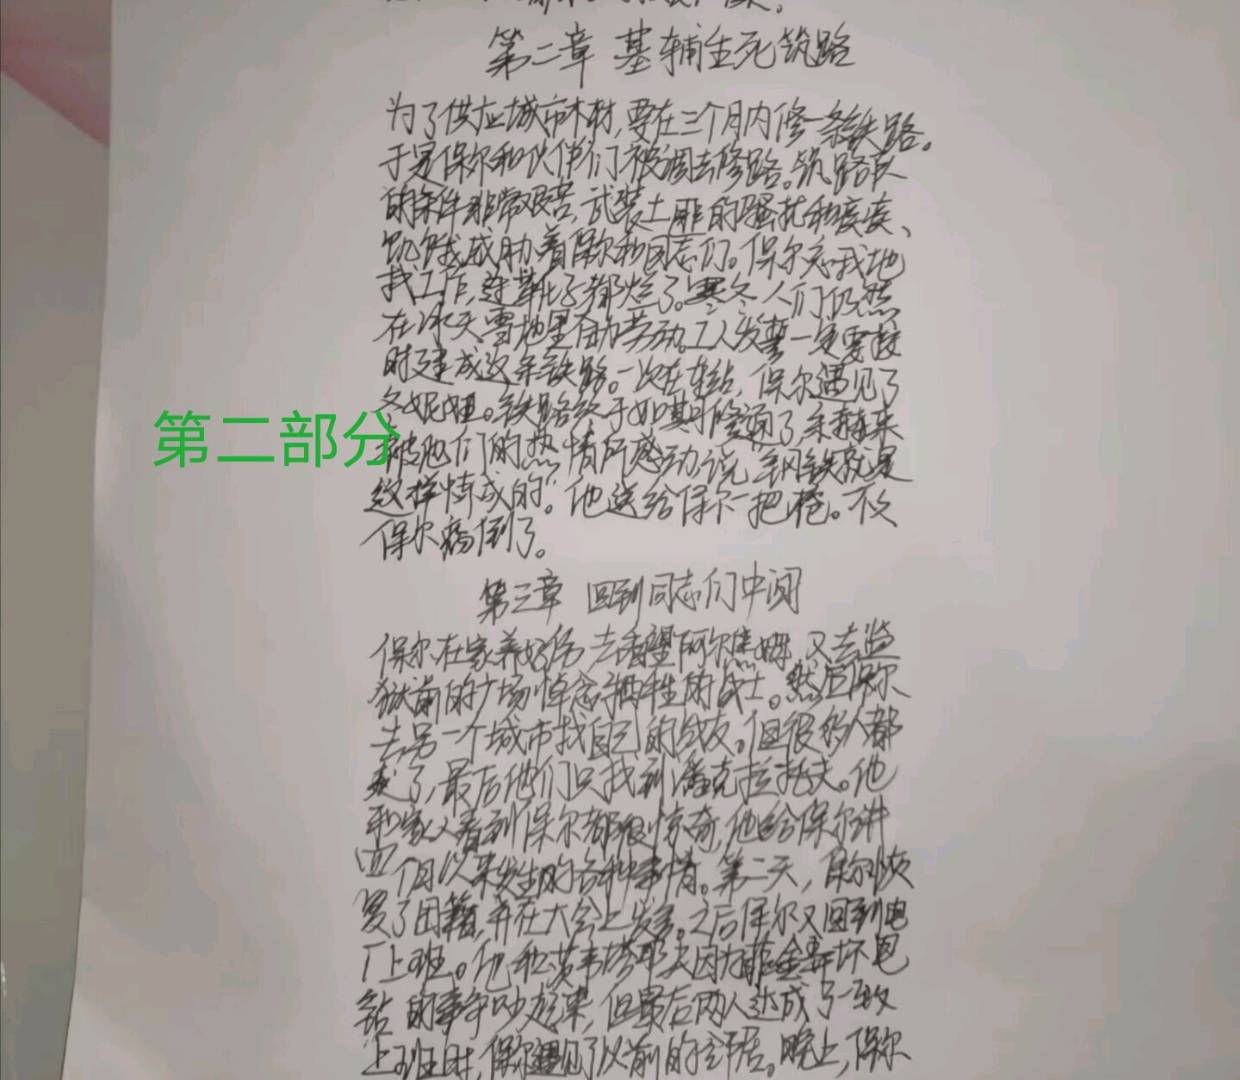 第二章 基辅生死筑路
为了供应城市木材，要在三个月内修一条铁路。
于是保尔和伙伴们被调去修路。筑路队
的条件非常艰苦，武装土匪的骚扰和疾凄、
饥饿威胁着保尔和同志们。保尔忘我地
找工作，连靴子都烂了。寒冬人们仍然
在冰天雪地里奋力劳动。工人发誓一定要按
时建成这条铁路。一次在车站，保尔遇见了
冬妮娅。铁路终于如期修通了，朱赫来
第二部分
被他们的热情所感动说，“钢铁就是
这样炼成的”。他送给保尔一把枪。不久
保尔病倒了。
第三章 回到同志们中间
保尔在家养好伤，去看望阿尔焦姆，又去监
狱前的广场悼念牺牲的战士。然后保尔
去另一个城市找自己的战友。但很多人都
变了，最后他们只找到潘克拉托夫。他
和家人看到保尔都很惊奇，他给保尔讲
四个月以来发生的各种事情。第二天，保尔恢
复了团籍，并在大会上发言。之后保尔又回到电
厂上班。他和茨韦塔耶夫因为菲金弄坏电
钻的事争吵起来，但最后两人达成了一致
上班时，保尔遇见了以前的邻居。晚上，保尔